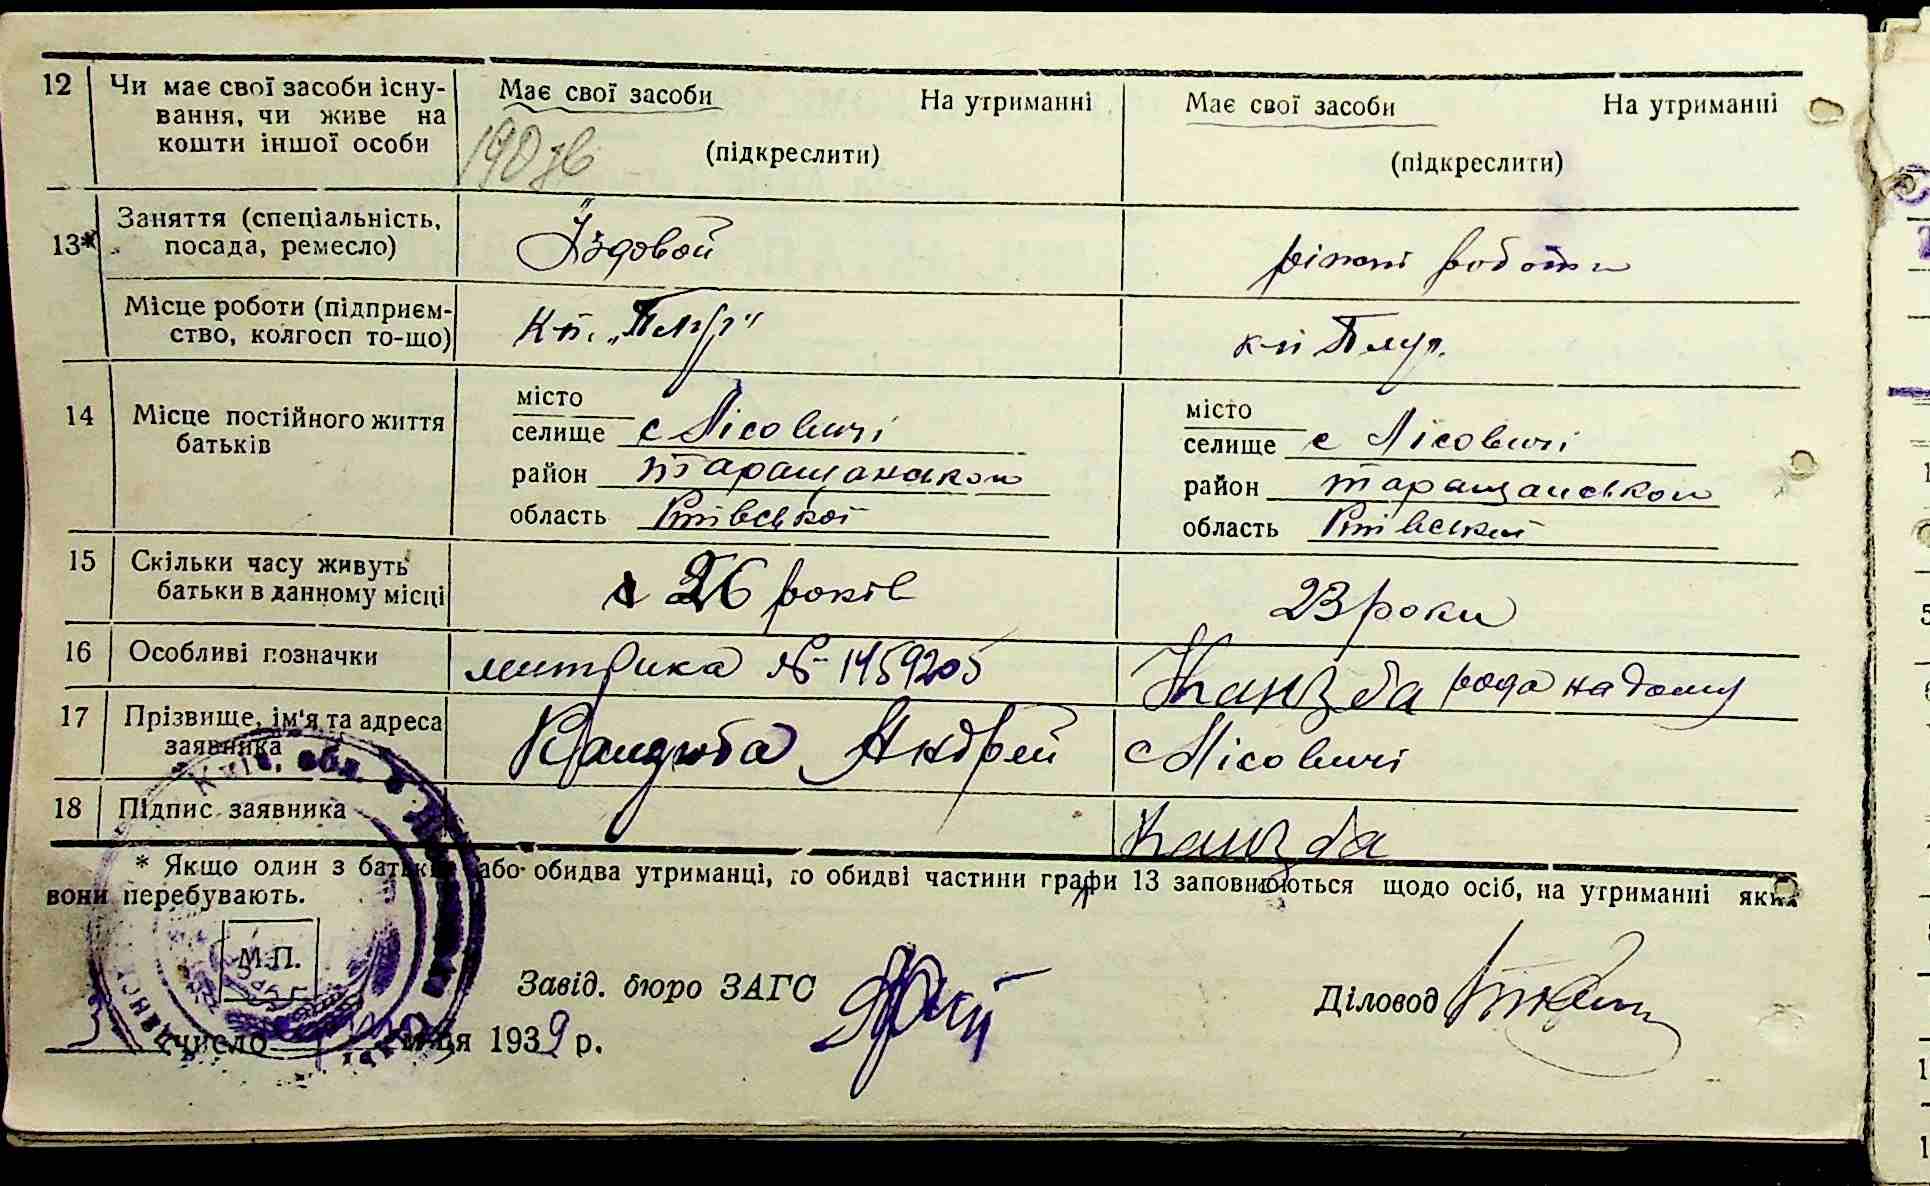 12 Чи має свої засоби існу-
вання, чи живе на
кошти іншої особи
Має свої засоби На утриманні
(підкреслити)
Має свої засоби На утриманні
(підкреслити)
13* Заняття (спеціальність,
посада, ремесло)
Їздовой
ріжні роботи
Місце роботи (підприєм-
ство, колгосп то-що)
к-п. „Плуг"
к-п Плуг.
14 Місце постійного життя
батьків
місто
селище с Лісовичі
район Таращанской
область Київської
місто
селище с Лісовичі
район Таращанської
область Київської
15 Скільки часу живуть
батьки в данному місці
26 років
23 роки
16 Особливі позначки
митрика № 1459205
рода на дому
17 Прізвище, ім'я та адреса
заявника
Андрей
с Лісовичі
18 Підпис заявника
* Якщо один з батьків або обидва утриманці, то обидві частини графи 13 заповнюються щодо осіб, на утриманні яких
вони перебувають.
Київ. обл.
М.П.
Завід. бюро ЗАГС
Діловод
число м-ця 1939 р.